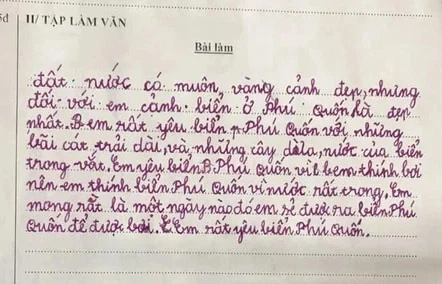 5đ II/ TẬP LÀM VĂN
Bài làm
đất nước có muôn, vàng cảnh đẹp, nhưng
đối với em cảnh biển ở Phú Quốn là đẹp
nhất. B em rất yêu biển p Phú Quốn với những
bãi cát trải dài, và, những cây dừa, nước của biển
trong vắt. Em yêu biển B Phú Quốn vì b em thính bơi
nên em thính biển Phú Quốn vì nước rất trong. Em
mong rằt là một ngày nào đó em sẽ được ra biển Phú
Quốn để được bơi. E Em rất yêu biển Phú Quốn.